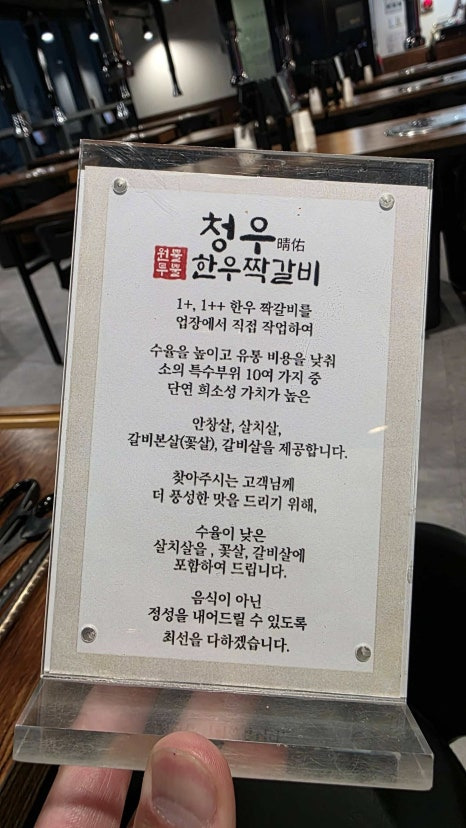 청우晴佑
원뿔
투뿔
한우짝갈비
1+, 1++ 한우 짝갈비를
업장에서 직접 작업하여
수율을 높이고 유통 비용을 낮춰
소의 특수부위 10여 가지 중
단연 희소성 가치가 높은
안창살, 살치살,
갈비본살(꽃살), 갈비살을 제공합니다.
찾아주시는 고객님께
더 풍성한 맛을 드리기 위해,
수율이 낮은
살치살을 , 꽃살, 갈비살에
포함하여 드립니다.
음식이 아닌
정성을 내어드릴 수 있도록
최선을 다하겠습니다.